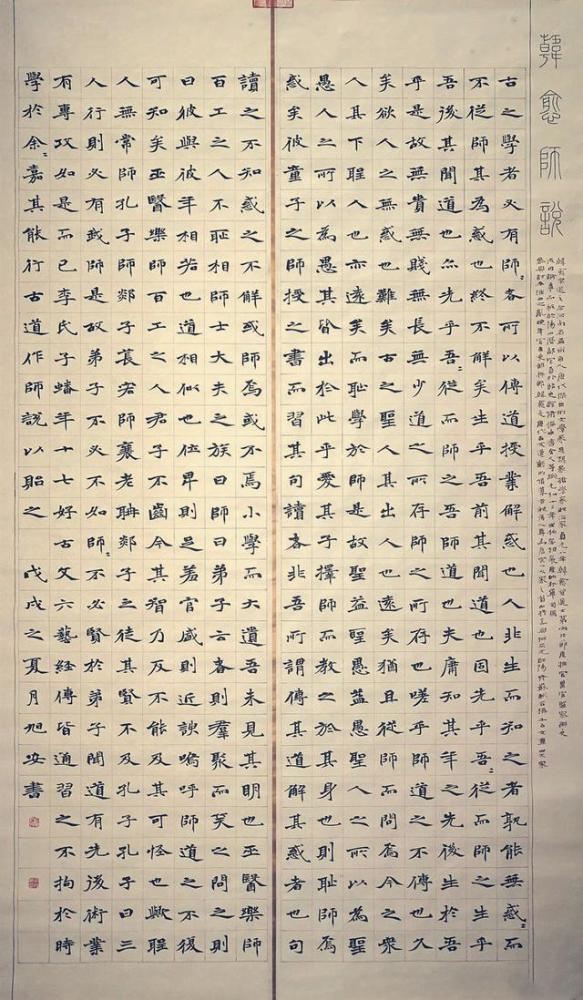 韓愈師說
古之學者必有師〻者所以傳道授業解惑也人非生而知之者孰能無惑〻而
不從師其為惑也終不解矣生乎吾前其聞道也固先乎吾〻從而師之生乎
吾後其聞道也亦先乎吾〻從而師之吾師道也夫庸知其年之先後生於吾
乎是故無貴無賤無長無少道之所存師之所存也嗟乎師道之不傳也久
矣欲人之無惑也難矣古之聖人其出人也遠矣猶且從師而問焉今之眾
人其下聖人也亦遠矣而恥學於師是故聖益聖愚益愚聖人之所以為聖
愚人之所以為愚其皆出於此乎愛其子擇師而教之於其身也則恥師焉
惑矣彼童子之師授之書而習其句讀者非吾所謂傳其道解其惑者也句
讀之不知惑之不解或師焉或不焉小學而大遺吾未見其明也巫醫樂師
百工之人不恥相師士大夫之族曰師曰弟子云者則羣聚而笑之問之則
曰彼與彼年相若也道相似也位卑則足羞官盛則近諛嗚呼師道之不復
可知矣巫醫樂師百工之人君子不齒今其智乃反不能及其可怪也歟聖
人無常師孔子師郯子萇宏師襄老聃郯子之徒其賢不及孔子孔子曰三
人行則必有我師是故弟子不必不如師〻不必賢於弟子聞道有先後術業
有專攻如是而已李氏子蟠年十七好古文六藝經傳皆通習之不拘於時
學於余〻嘉其能行古道作師說以貽之 戊戌之夏月旭安書